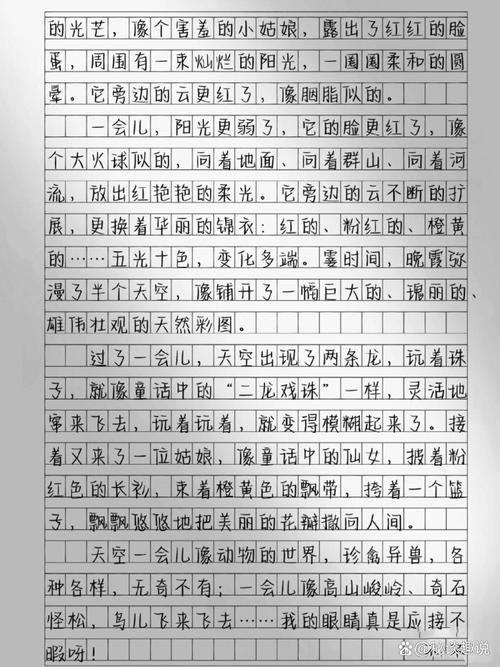 的光芒，像个害羞的小姑娘，露出了红红的脸
蛋，周围有一束灿烂的阳光，一圈圈柔和的圆
晕。它旁边的云更红了，像胭脂似的。
一会儿，阳光更弱了，它的脸更红了，像
个大火球似的，向着地面、向着群山、向着河
流，放出红艳艳的柔光。它旁边的云不断的扩
展，更换着华丽的锦衣：红的、粉红的、橙黄
的……五光十色，变化多端。霎时间，晚霞弥
漫了半个天空，像铺开了一幅巨大的、瑰丽的、
雄伟壮观的天然彩图。
过了一会儿，天空出现了两条龙，玩着珠
子，就像童话中的“二龙戏珠”一样，灵活地
窜来飞去，玩着玩着，就变得模糊起来了。接
着又来了一位姑娘，像童话中的仙女，披着粉
红色的长衫，束着橙黄色的飘带，挎着一个篮
子，飘飘悠悠地把美丽的花瓣撒向人间。
天空一会儿像动物的世界，珍禽异兽，各
种各样，无奇不有；一会儿像高山峻岭、奇石
怪松，鸟儿飞来飞去……我的眼睛真是应接不
暇呀！